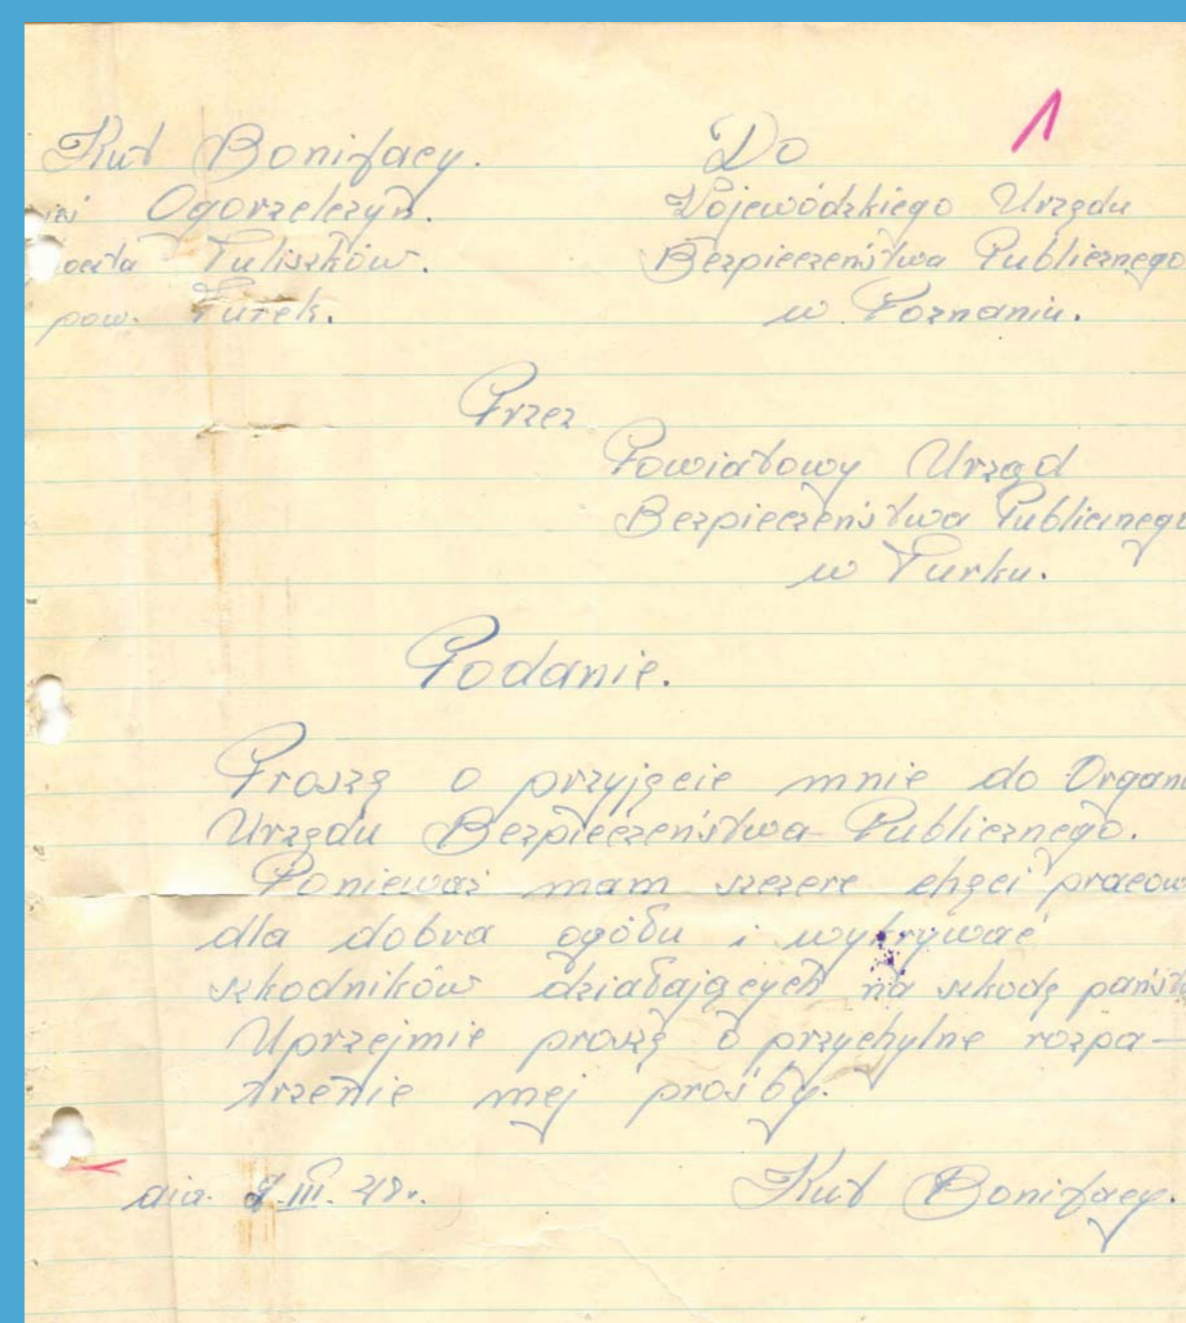 1
Kut Bonifacy.
Do
wieś Ogorzelczyn.
Wojewódzkiego Urzędu
poczta Tuliszków.
Bezpieczeństwa Publicznego
pow. Turek.
w Poznaniu.
Przez
Powiatowy Urząd
Bezpieczeństwa Publicznego
w Turku.
Podanie.
Proszę o przyjęcie mnie do Organ
Urzędu Bezpieczeństwa Publicznego.
Ponieważ mam szczere chęci pracow
dla dobra ogółu i wykrywać
szkodników działających na szkodę państw
Uprzejmie proszę o przychylne rozpa-
trzenie mej prośby.
dnia. III. 48r.
Kut Bonifacy.